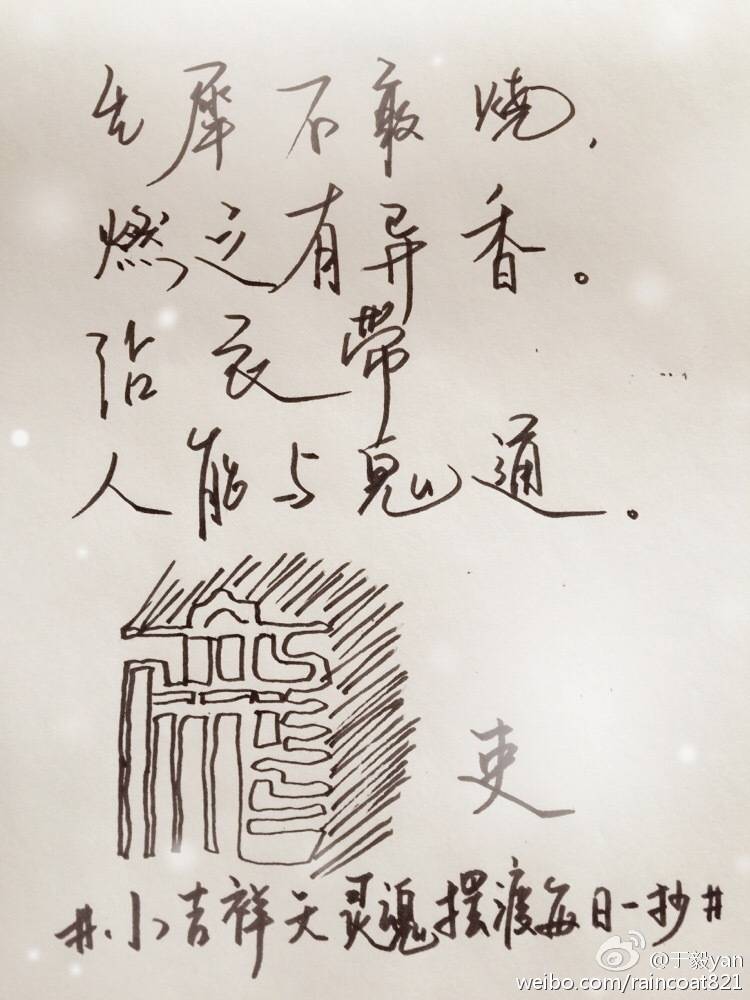 生犀不敢烧,
燃之有异香。
沾衣带
人能与鬼通。
吏
#小吉祥天灵魂摆渡每日一抄#
@于毅yan
weibo.com/raincoat821